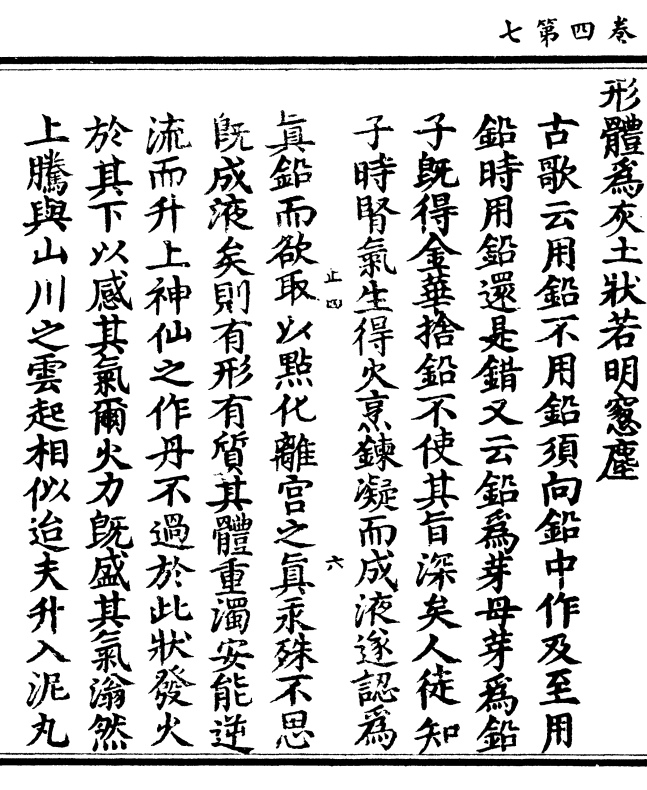 卷四第七
形體為灰土狀若明窻塵
古歌云用鉛不用鉛須向鉛中作及至用
鉛時用鉛還是錯又云鉛為芽母芽為鉛
子旣得金華捨鉛不使其旨深矣人徒知
子時腎氣生得火烹鍊凝而成液遂認為
止四
六
眞鉛而欲取以點化離宮之眞汞殊不思
旣成液矣則有形有質其體重濁安能逆
流而升上神仙之作丹不過於此狀發火
於其下以感其氣爾火力旣盛其氣滃然
上騰與山川之雲起相似迨夫升入泥丸